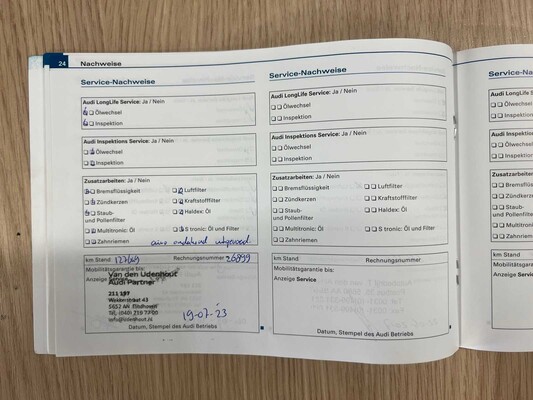 24 Nachweise
Service-Nachweise
Audi LongLife Service: Ja / Nein
Ölwechsel
Inspektion
Audi Inspektions Service: Ja / Nein
Ölwechsel
Inspektion
Zusatzarbeiten: Ja / Nein
Bremsflüssigkeit Luftfilter
Zündkerzen Kraftstofffilter
Staub- Haldex: Öl
und Pollenfilter
Multitronic: Öl S tronic: Öl und Filter
Zahnriemen airco onderhoud uitgevoerd
km Stand Rechnungsnummer 26899
Mobilitätsgarantie bis:
Anzeige Service
Van den Udenhout
Audi Partner
5652 AH Eindhoven
19-07-'23
Datum, Stempel des Audi Betriebs
Service-Nachweise
Audi LongLife Service: Ja / Nein
Ölwechsel
Inspektion
Audi Inspektions Service: Ja / Nein
Ölwechsel
Inspektion
Zusatzarbeiten: Ja / Nein
Bremsflüssigkeit Luftfilter
Zündkerzen Kraftstofffilter
Staub- Haldex: Öl
und Pollenfilter
Multitronic: Öl S tronic: Öl und Filter
Zahnriemen
km Stand Rechnungsnummer
Mobilitätsgarantie bis:
Anzeige Service
Datum, Stempel des Audi Betriebs
Service-Na
Audi LongLife
Ölwechsel
Inspektion
Audi Inspektion
Ölwechsel
Inspektion
Zusatzarbeiten
Bremsflüss
Zündkerzen
Staub-
und Pollenfilter
Multitronic
Zahnriemen
km Stand
Mobilitätsgara
Anzeige Servic